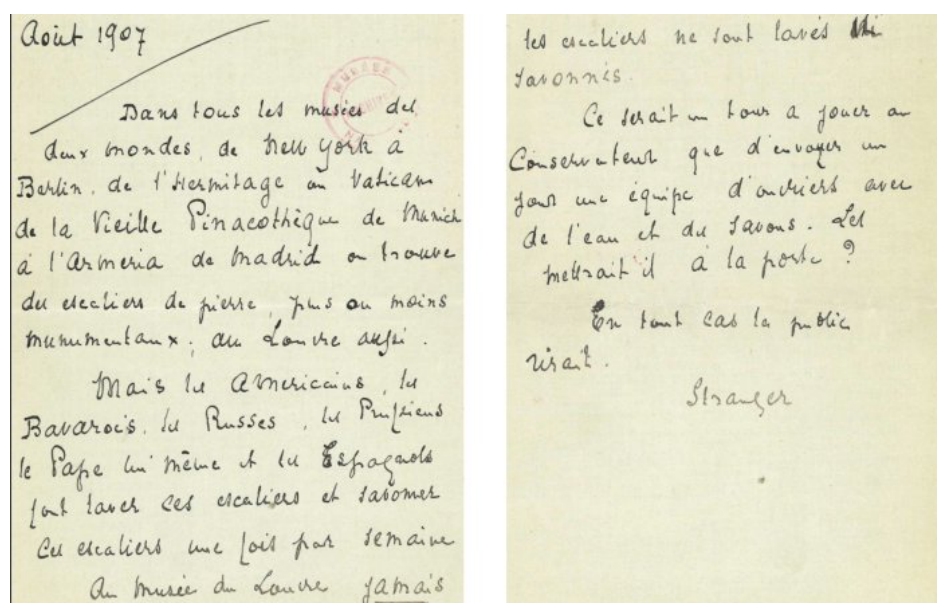 Août 1907
MUSÉE
Dans tous les musées des
deux mondes, de New York à
Berlin, de l'Hermitage au Vatican
de la Vieille Pinacothèque de Munich
à l'Armeria de Madrid on trouve
des escaliers de pierre, plus ou moins
monumentaux; au Louvre aussi.
Mais les Américains, les
Bavarois, les Russes, les Prussiens
le Pape lui même et les Espagnols
font laver ces escaliers et savonner
ces escaliers une fois par semaine
Au Musée du Louvre jamais
les escaliers ne sont lavés ni
savonnés.
Ce serait un tour a jouer au
Conservateur que d'envoyer un
jour une équipe d'ouvriers avec
de l'eau et du savons. Les
mettrait il à la porte ?
En tout cas le public
rirait.
Stranger